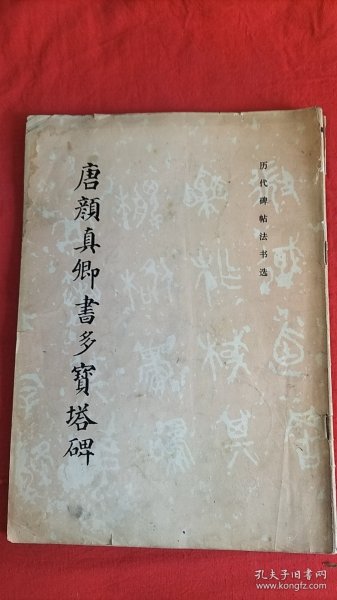 历代碑帖法书选
唐顏真卿書多寶塔碑
孔夫子旧书网
www.kongfz.com